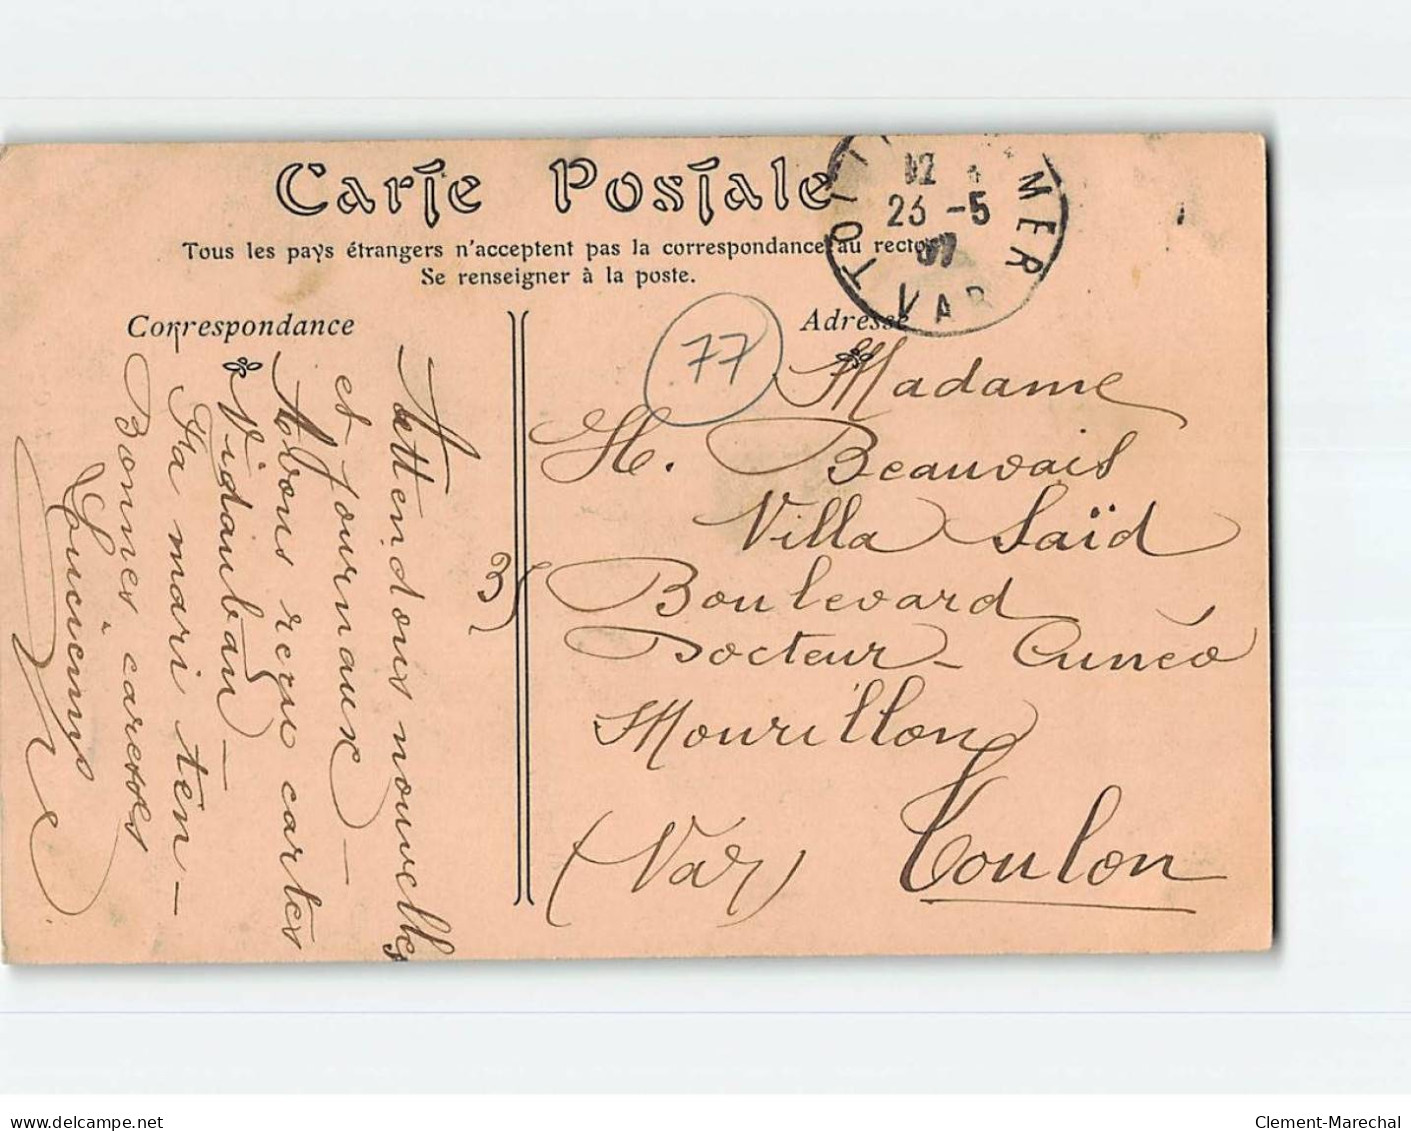 Carte Postale
Tous les pays étrangers n'acceptent pas la correspondance au recto
Se renseigner à la poste.
Correspondance
Adresse
TOUL MER
12
23 -5
07
VAR
77
Madame
H. Beauvais
Villa Saïd
Boulevard
Docteur Cunéo
Mourillon
Toulon
(Var)
3)
Attendons nouvelles
et journaux —
Avons reçu cartes
Vidauban —
Ta mari ten —
Bonnes caresses